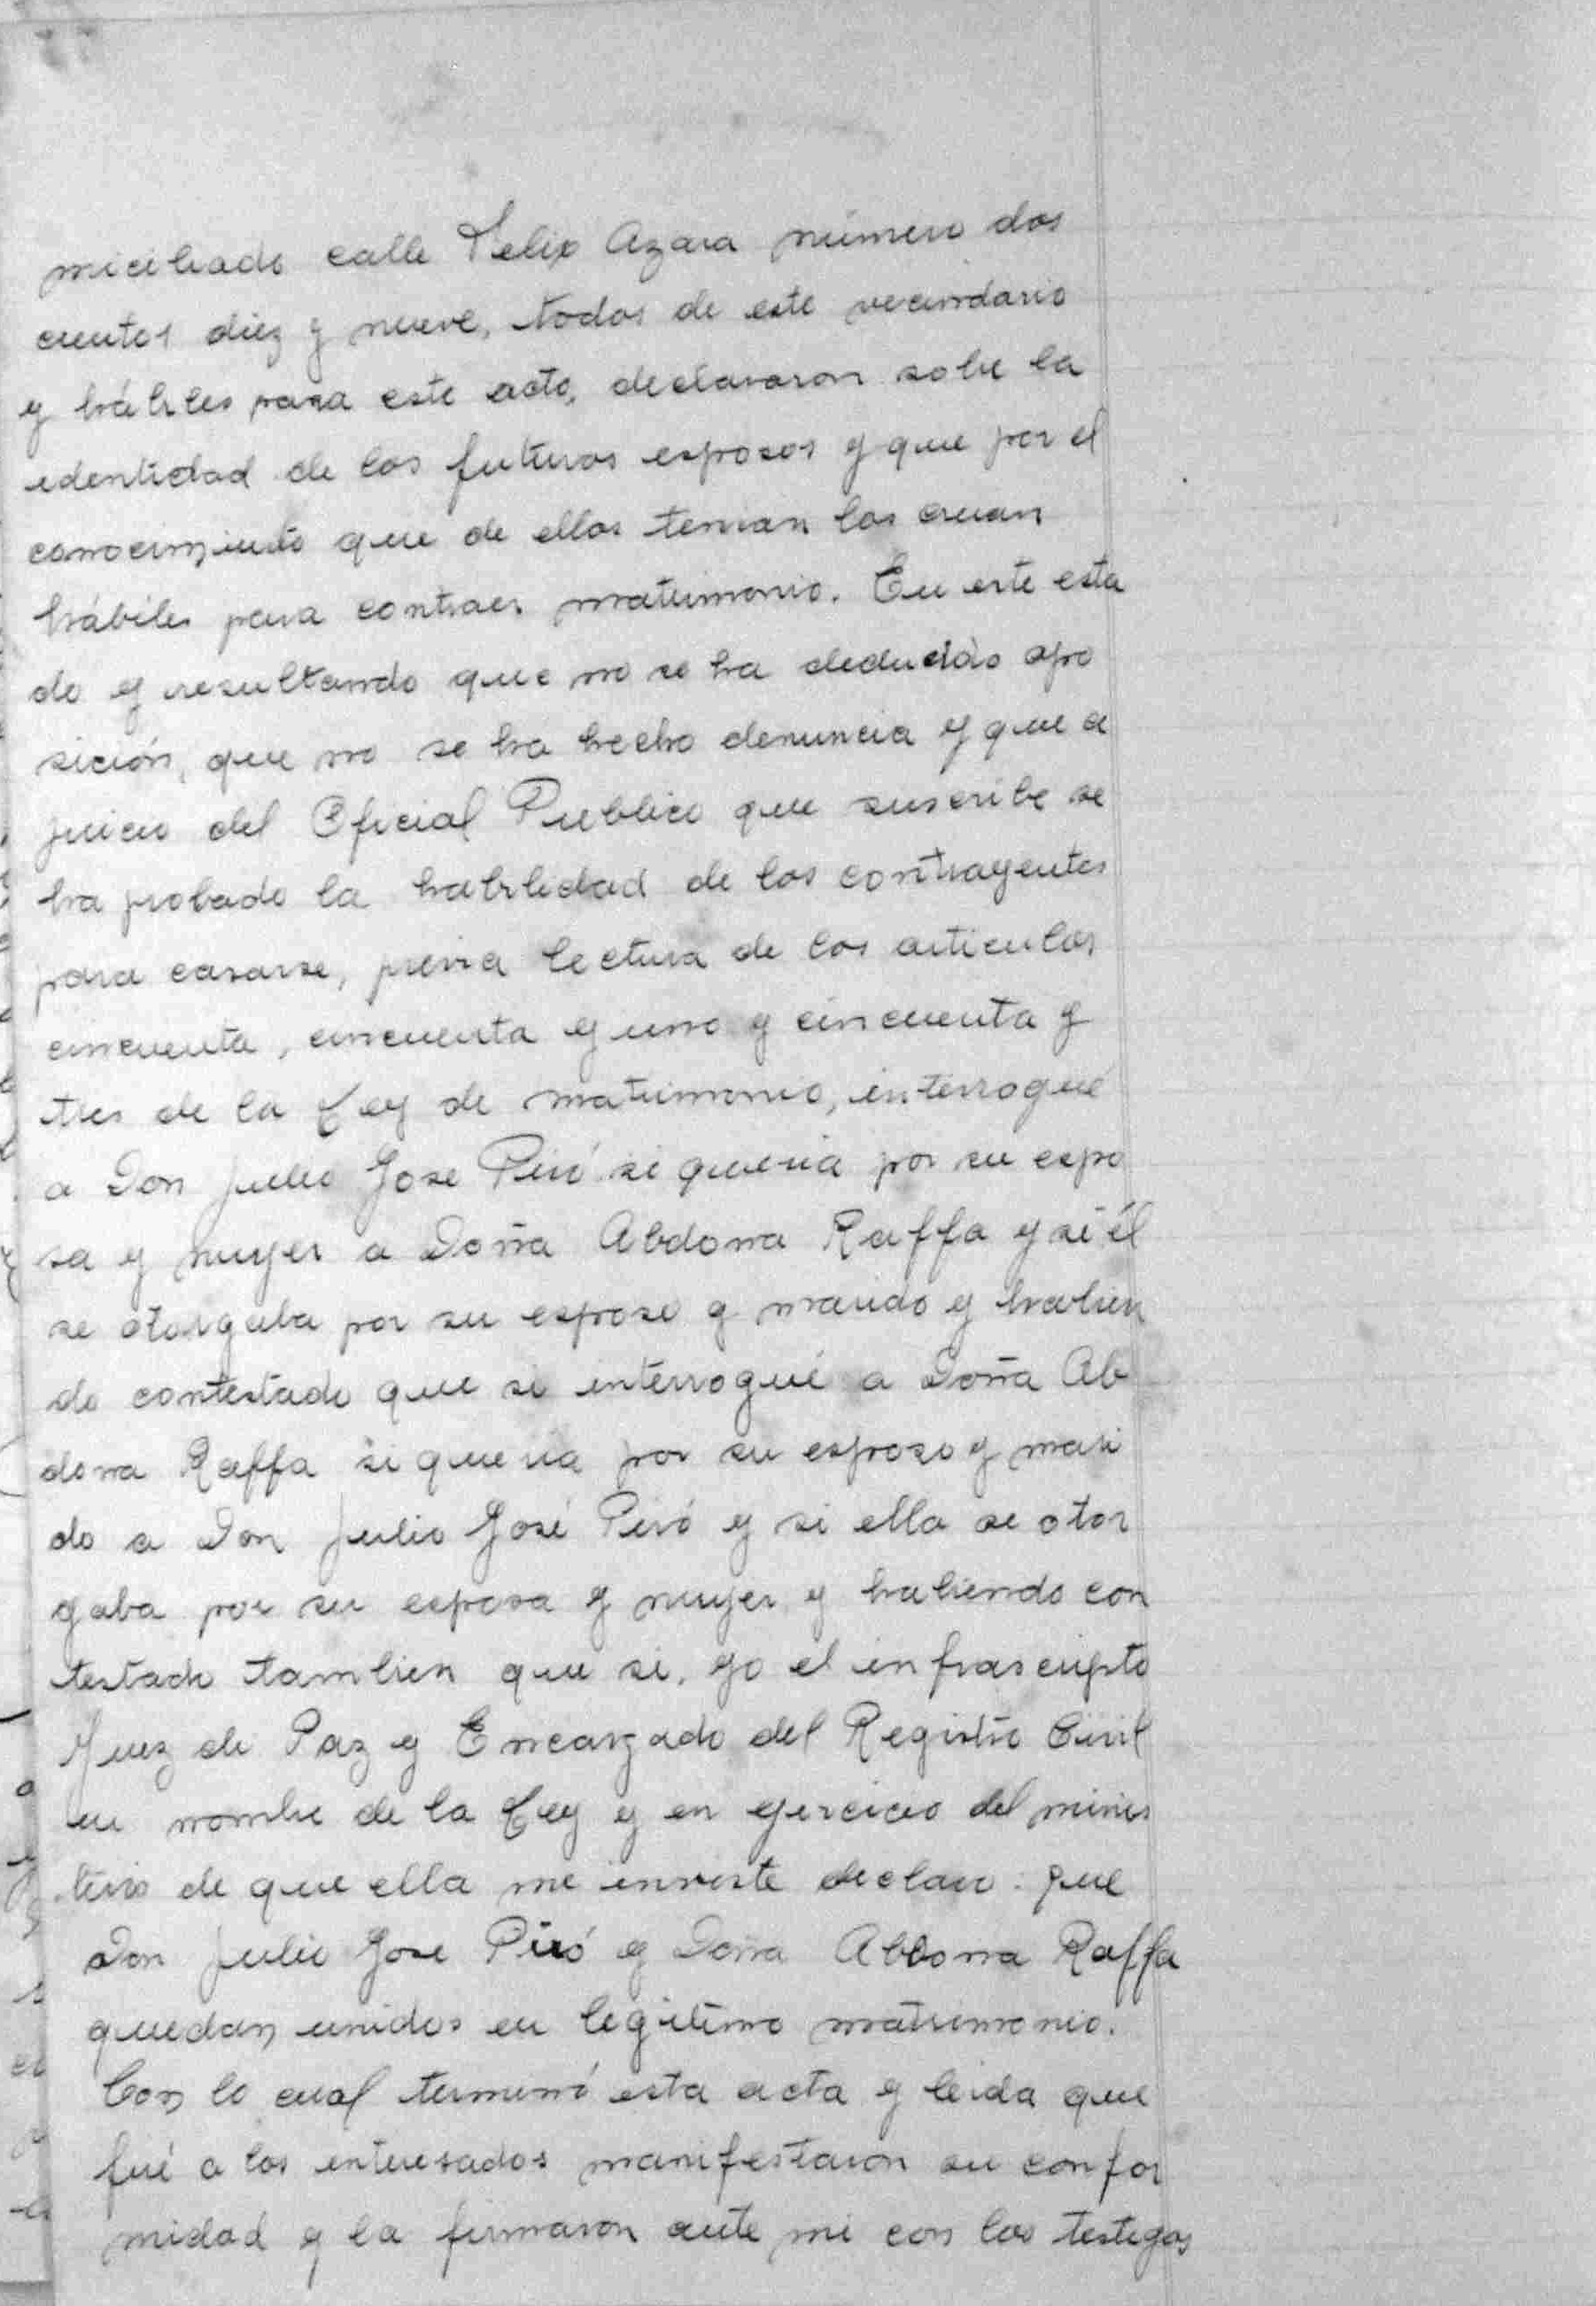 miciliado calle Felix Azara número dos
cientos diez y nueve, todos de este vecindario
y hábiles para este acto, declararon sobre la
identidad de los futuros esposos y que por el
conocimiento que de ellos tenian los creian
hábiles para contraer matrimonio. En este esta
do y resultando que no se ha deducido opo
sición, que no se ha hecho denuncia y que a
juicio del Oficial Publico que suscribe se
ha probado la habilidad de los contrayentes
para casarse, previa lectura de los articulos
cincuenta, cincuenta y uno y cincuenta y
tres de la Ley de matrimonio, interrogué
a Don Julio Jose Piró si queria por su espo
sa y mujer a Doña Abdona Raffa y si él
se otorgaba por su esposo y marido y habien
do contestado que si interrogué a Doña Ab
dona Raffa si queria por su esposo y mari
do a Don Julio José Piró y si ella se otor
gaba por su esposa y mujer y habiendo con
testado tambien que si, yo el infrascripto
Juez de Paz y Encargado del Registro Civil
en nombre de la Ley y en ejercicio del minis
terio de que ella me inviste declaro: que
Don Julio Jose Piró y Doña Abdona Raffa
quedan unidos en legitimo matrimonio.
Con lo cual terminó esta acta y leida que
fué a los interesados manifestaron su confor
midad y la firmaron ante mi con los testigos